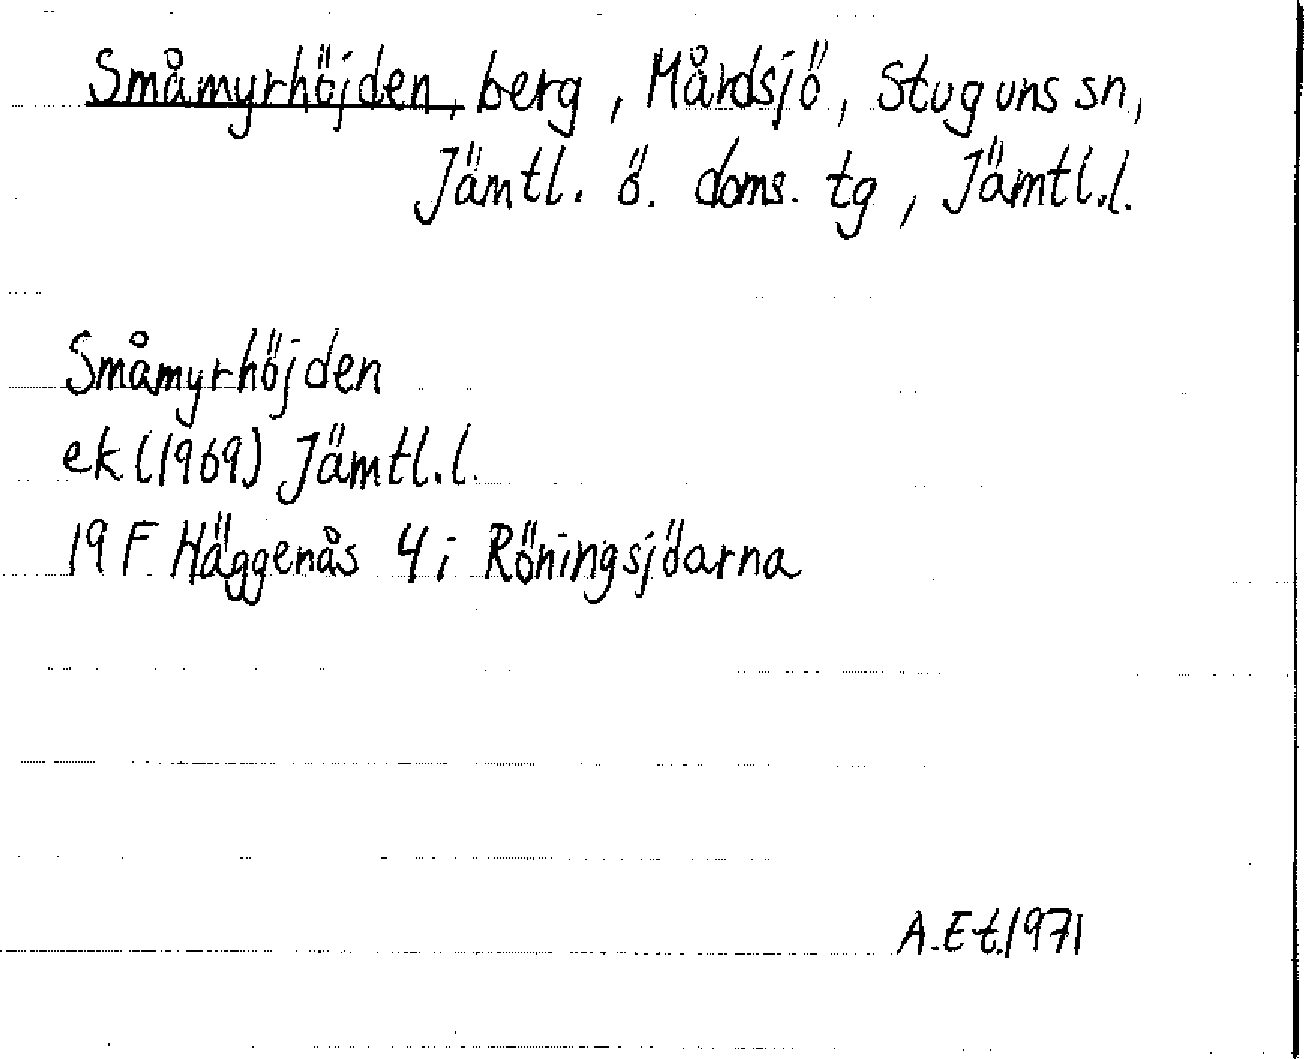 Småmyrhöjden, berg, Mårdsjö, Stuguns sn,
Jämtl. ö. doms. tg, Jämtl.l.
Småmyrhöjden
ek (1969) Jämtl.l.
19 F Häggenås 4 i Röningsjöarna
A.Et.1971